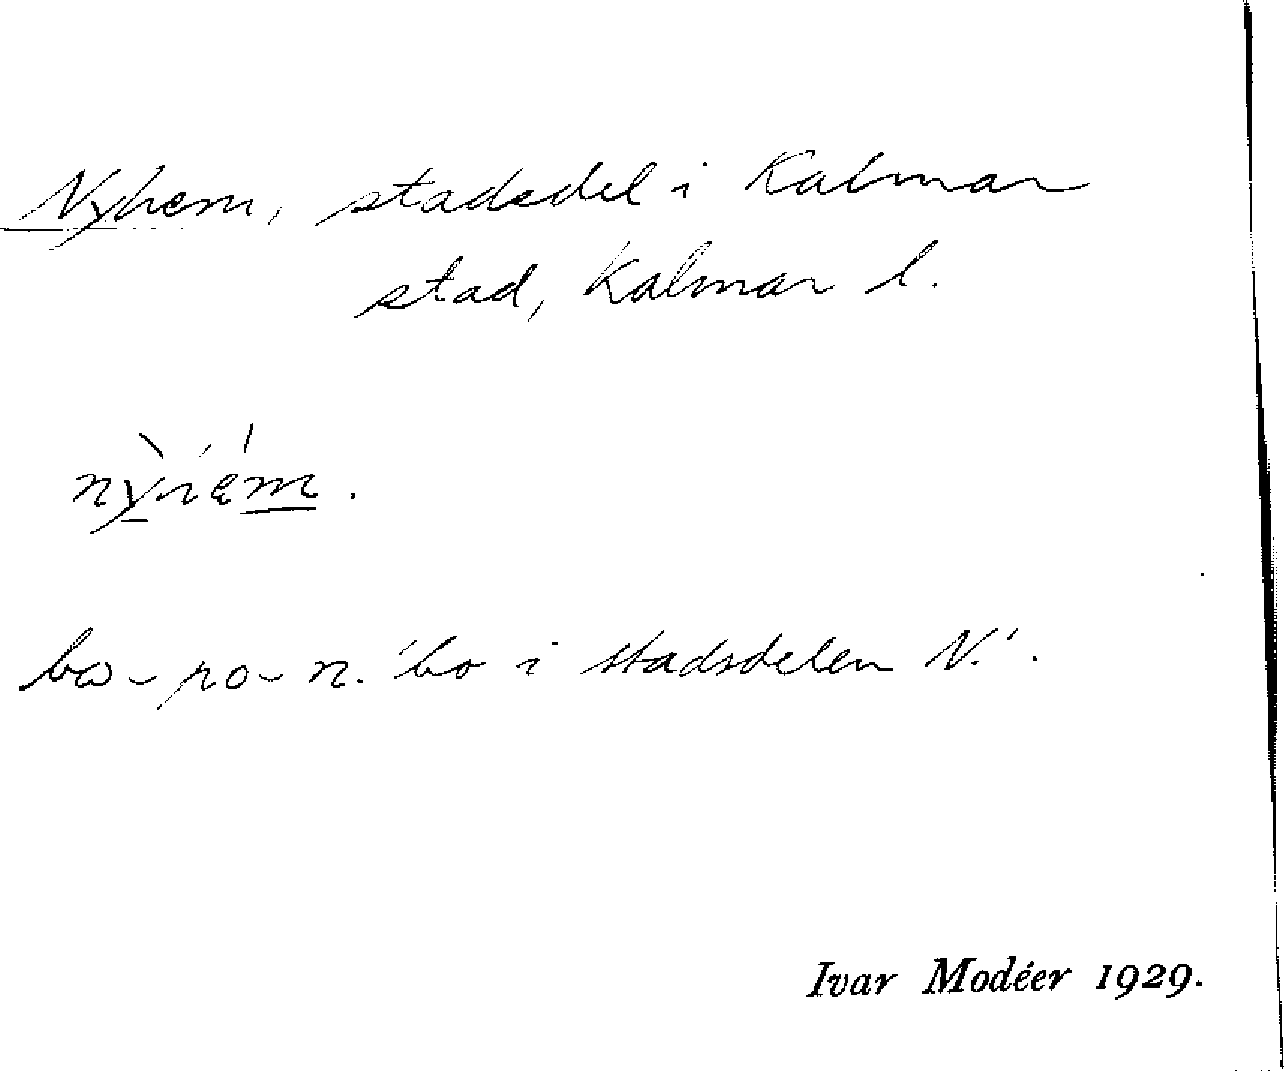 Nyhem, stadsdel i Kalmar
stad, Kalmar l.
bω - po - n. 'bo i stadsdelen N.'.
Ivar Modéer 1929.